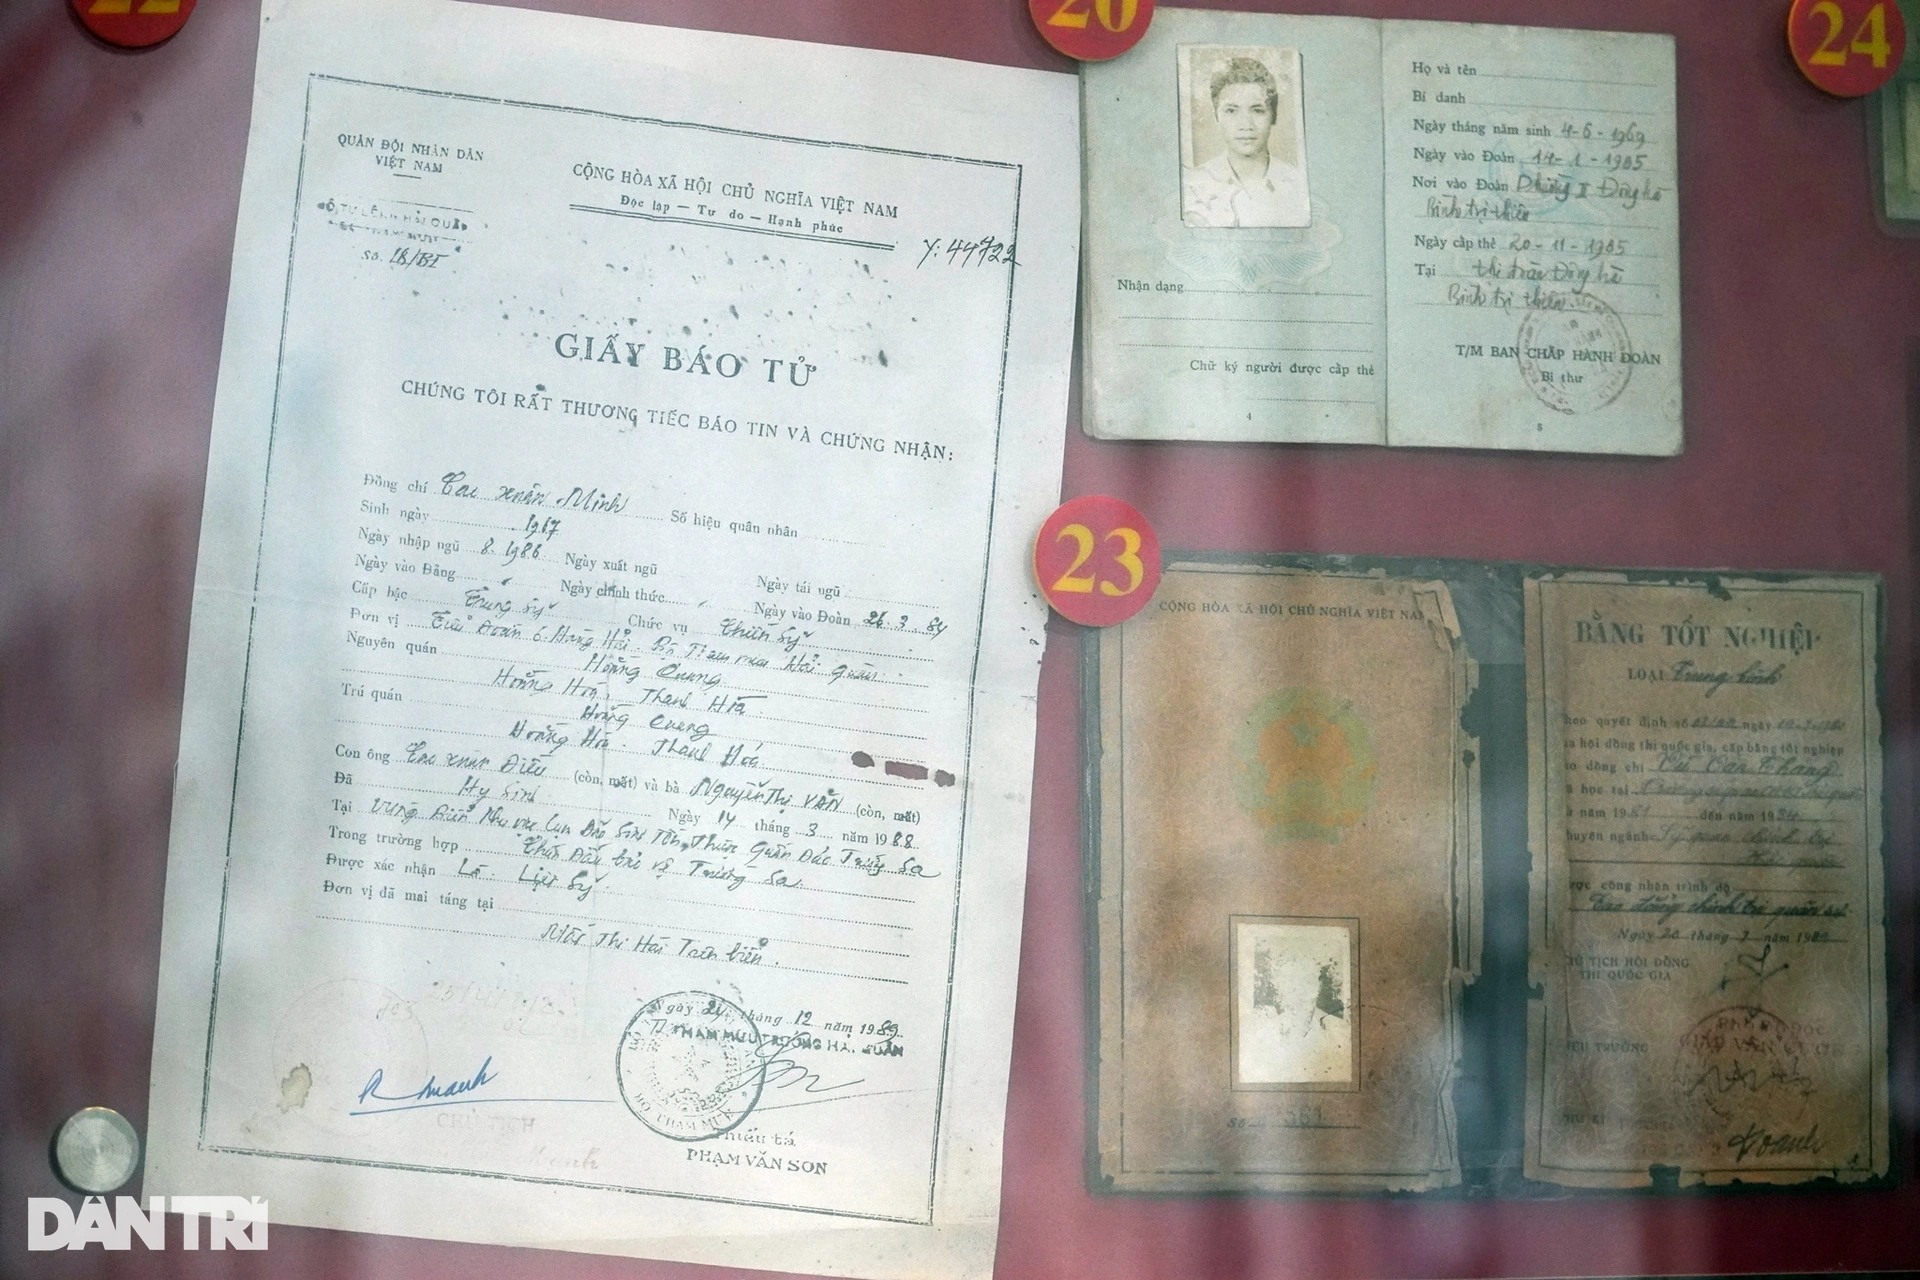 22
QUÂN ĐỘI NHÂN DÂN
VIỆT NAM
BỘ TƯ LỆNH HẢI QUÂN
Số. 18/BT
CỘNG HÒA XÃ HỘI CHỦ NGHĨA VIỆT NAM
Độc lập — Tự do — Hạnh phúc
Y: 44722
GIẤY BÁO TỬ
CHÚNG TÔI RẤT THƯƠNG TIẾC BÁO TIN VÀ CHỨNG NHẬN:
Đồng chí Cao Xuân Minh Số hiệu quân nhân
Sinh ngày 1967
Ngày nhập ngũ 8.1986 Ngày xuất ngũ Ngày tái ngũ
Ngày vào Đảng Ngày chính thức Ngày vào Đoàn 26.3.84
Cấp bậc Trung sỹ Chức vụ Chiến sỹ
Đơn vị Tiểu Đoàn 6 Hàng Hải. Bộ Tham mưu Hải Quân
Nguyên quán Hoằng Quang
Hoằng Hoá Thanh Hoá
Trú quán Hoằng Quang
Hoằng Hoá - Thanh Hoá
Con ông Cao Xuân Điều (còn, mất) và bà Nguyễn Thị Vân (còn, mất)
Đã Hy Sinh Ngày 14 tháng 3 năm 1988
Tại Vùng Biển Khu vực Cụm Đảo Sinh Tồn Thuộc Quần Đảo Trường Sa
Trong trường hợp Chiến Đấu bảo vệ Trường Sa
Được xác nhận Là Liệt Sỹ
Đơn vị đã mai táng tại
Mất Thi Hài Trên biển.
Ngày 24 tháng 12 năm 1989
THAM MƯU TRƯỞNG HẢI QUÂN
BỘ THAM MƯU
CHỦ TỊCH
Thiếu tá
PHẠM VĂN SƠN
DÂN TRÍ
20
Nhận dạng
Chữ ký người được cấp thẻ
4
Họ và tên
Bí danh
Ngày tháng năm sinh 4-6-1969
Ngày vào Đoàn 14-1-1985
Nơi vào Đoàn Phường II Đông hà
Bình trị thiên
Ngày cấp thẻ 20-11-1985
Tại thị trấn Đông hà
Bình trị thiên
T/M BAN CHẤP HÀNH ĐOÀN
Bí thư
5
24
23
CỘNG HÒA XÃ HỘI CHỦ NGHĨA VIỆT NAM
Số
BẰNG TỐT NGHIỆP
LOẠI Trung bình
theo quyết định số ngày
hội đồng thi quốc gia, cấp bằng tốt nghiệp
đồng chí Vũ Văn Thắng
học tại
năm 1981 đến năm 1984
chuyên ngành Sỹ quan chính trị
Hải quân
được công nhận trình độ
Cao đẳng chính trị quân sự
Ngày 20 tháng 7 năm
CHỦ TỊCH HỘI ĐỒNG
THI QUỐC GIA
HIỆU TRƯỞNG